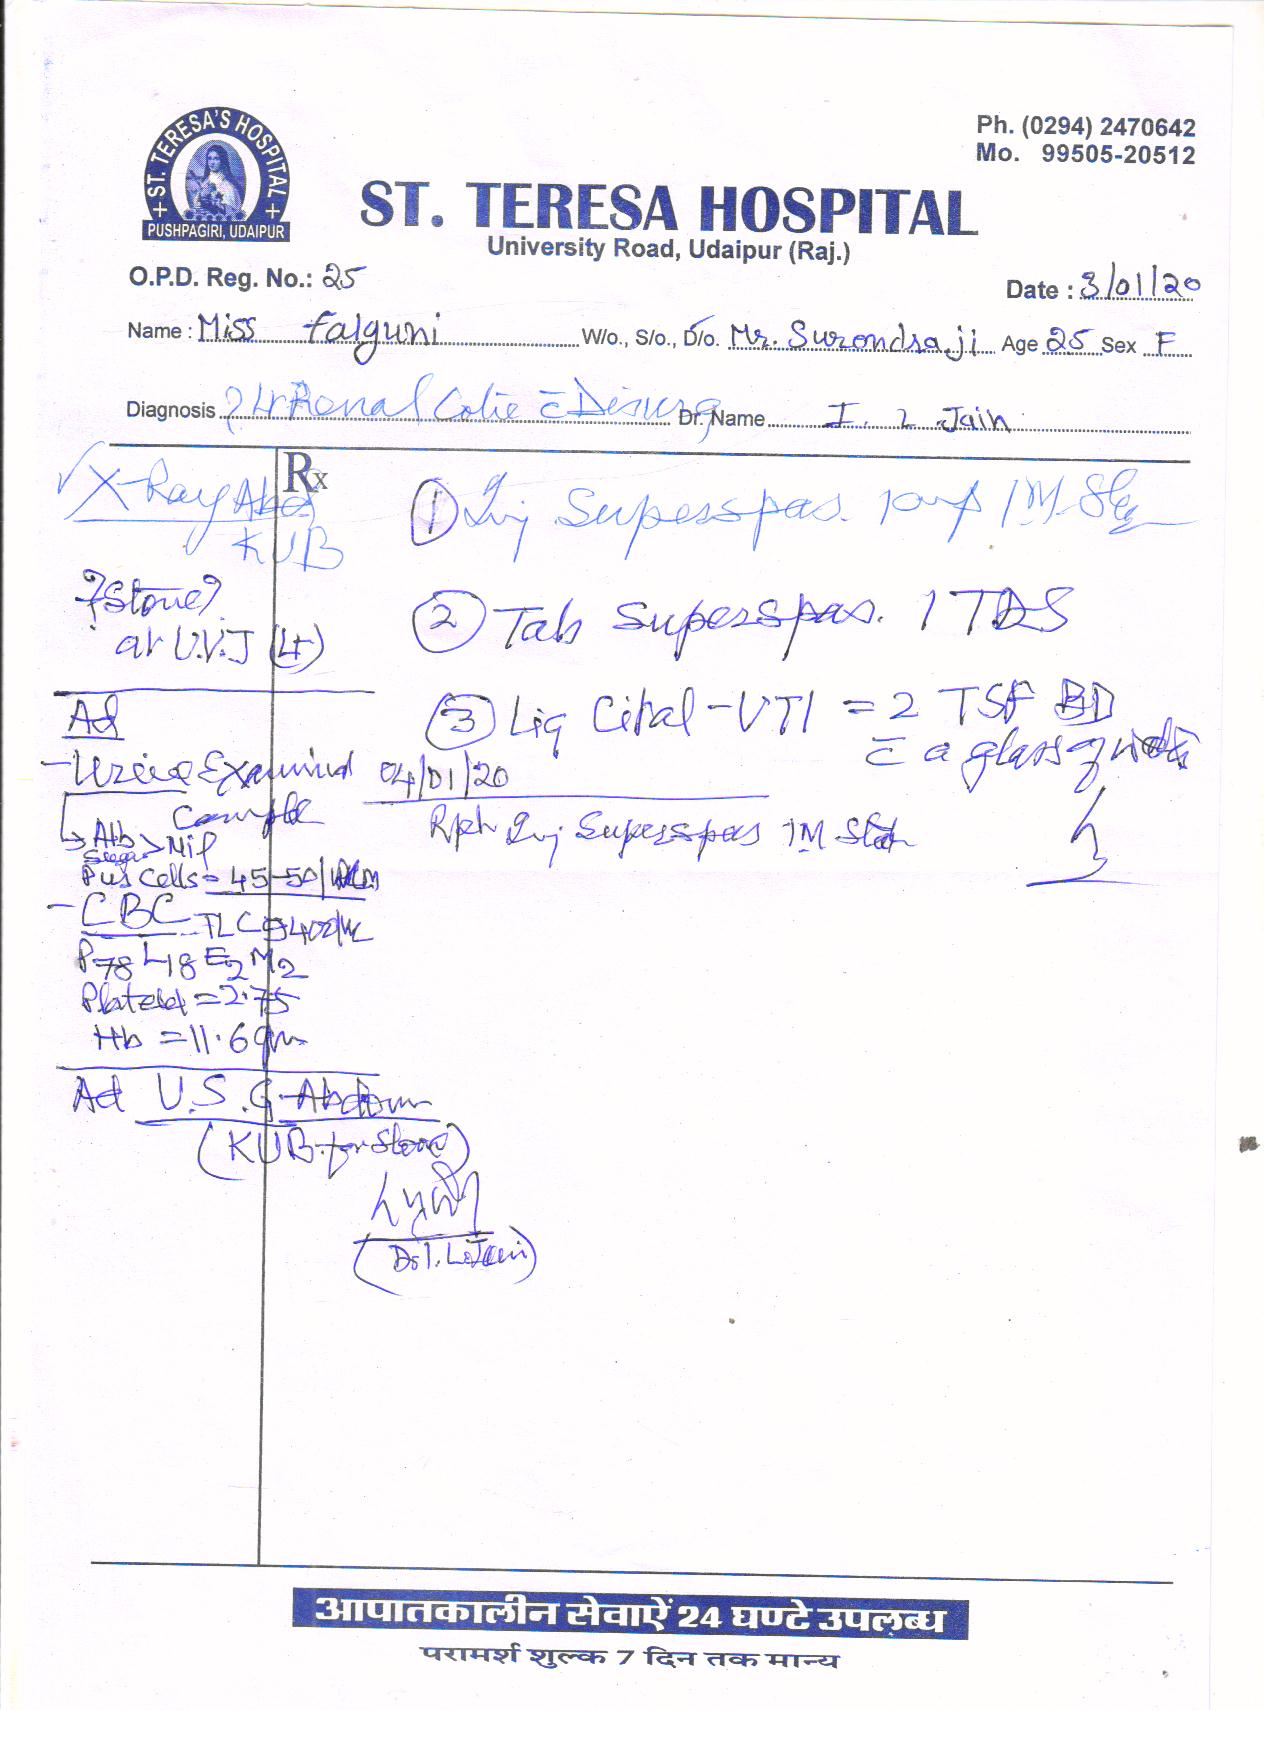 ST. TERESA'S HOSPITAL
PUSHPAGIRI, UDAIPUR
Ph. (0294) 2470642
Mo. 99505-20512
ST. TERESA HOSPITAL
University Road, Udaipur (Raj.)
O.P.D. Reg. No.: 25
Date : 3/01/20
Name : Miss falguni W/o., S/o., D/o. Mr. Surendra ji Age 25 Sex F
Diagnosis ? Lt Renal Colic c̄ Dr. Name I. L Jain
Rx
X-Ray Abd
KUB
? Stone?
at U.V.J (Lt)
① Inj Superspas. IM Stat
② Tab Superspas. 1 TDS
③ Liq Cital-UTI = 2 TSF BD
c̄ a glass of water
Ad
- Urine Examined
Complete
Alb
Sugar > Nil
Pus Cells = 45-50/
- CBC - TLC 9400/
P78 L18 E2 M2
Platelet = 2.75
Hb = 11.6 gm
04/01/20
Rpt Inj Superspas IM Stat
Ad U.S.G-Abdomen
(KUB-for Stone)
(Dr I. L. Jain)
आपातकालीन सेवाऐं 24 घण्टे उपलब्ध
परामर्श शुल्क 7 दिन तक मान्य